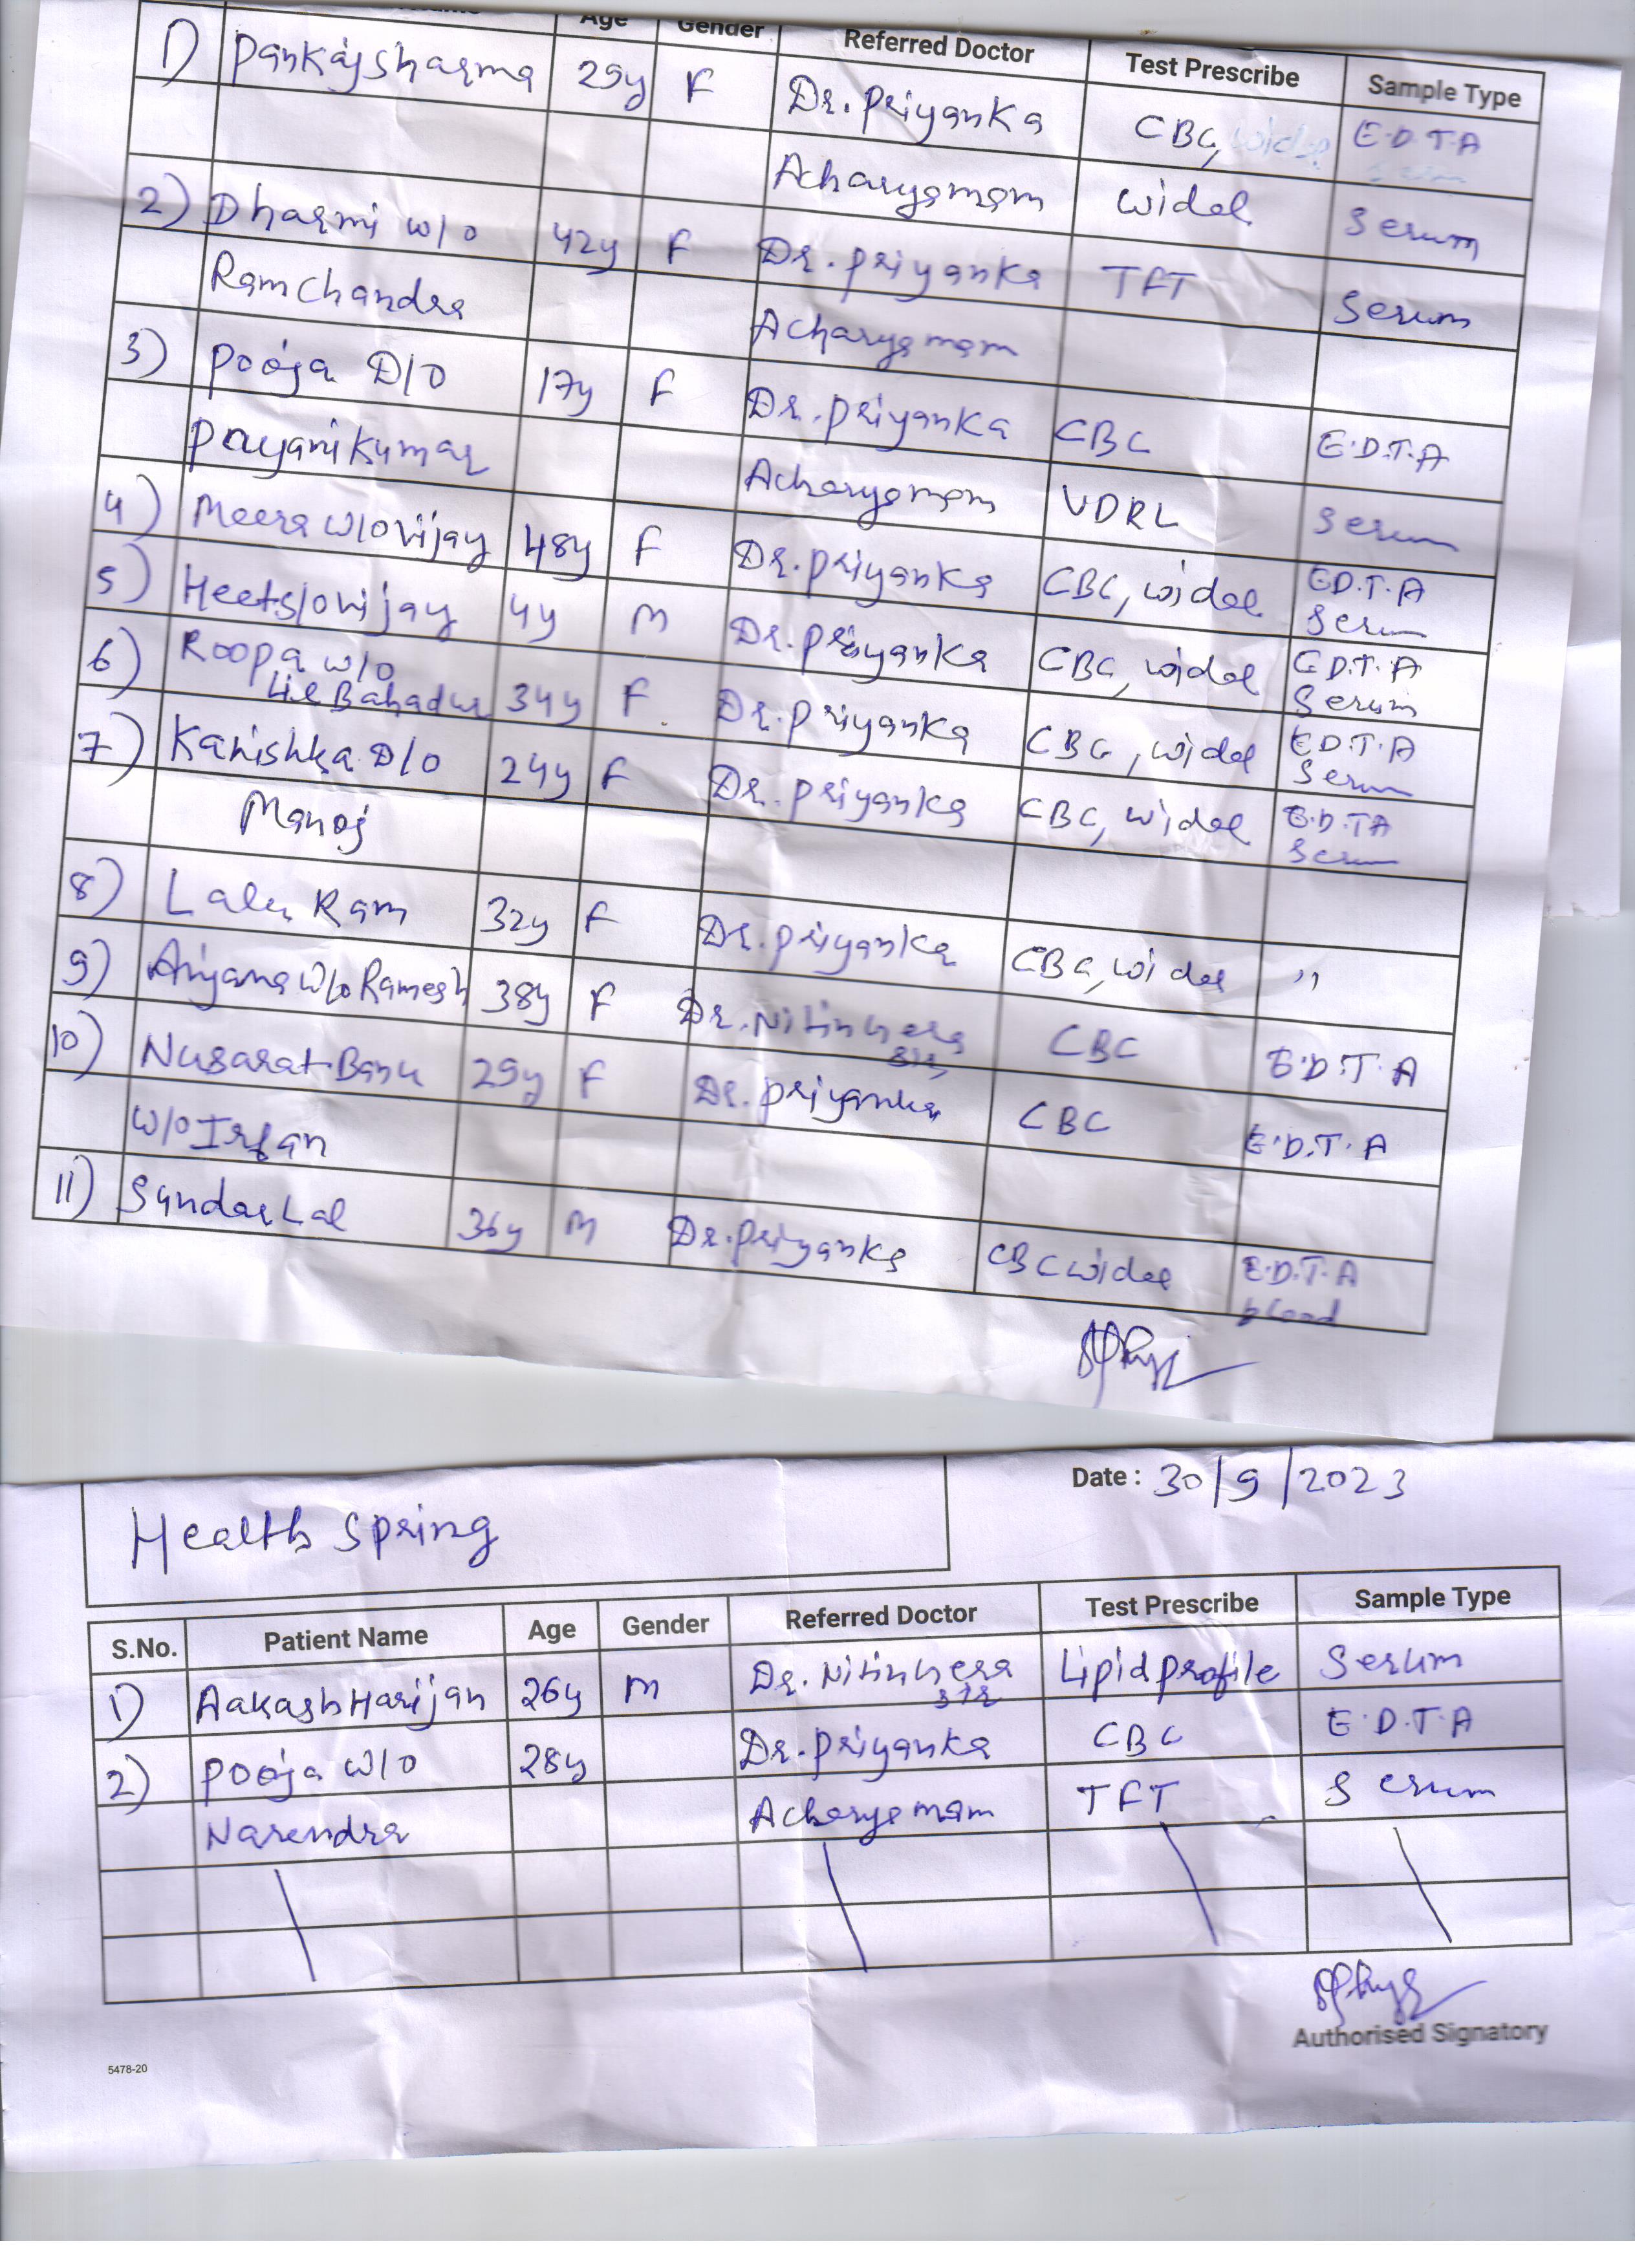 Age Gender Referred Doctor Test Prescribe Sample Type
1) Pankaj Sharma 29y F Dr. Priyanka CBC, widal E.D.T.A
Acharya mam widal Serum
2) Dharmi w/o 42y F Dr. Priyanka TFT Serum
Ram Chandra Acharya mam
3) Pooja D/O 17y F Dr. Priyanka CBC E.D.T.A
Kumar Acharya mam VDRL Serum
4) Meera W/O Vijay 48y F Dr. Priyanka CBC, widal E.D.T.A
Serum
5) Heet S/O Vijay 4y M Dr. Priyanka CBC, widal E.D.T.A
Serum
6) Roopa w/o
Bahadur 34y F Dr. Priyanka CBC, widal E.D.T.A
Serum
7) Kanishka D/O 24y F Dr. Priyanka CBC, widal E.D.TA
Serum
Manoj
8) Lalu Ram 32y F Dr. Priyanka CBC, widal ,,
9) W/o Ramesh 38y F Dr. Nitin CBC E.D.T.A
Sir
10) Nusarat Banu 29y F Dr. Priyanka CBC E.D.T.A
W/o Irfan
11) Sundar Lal 36y M Dr. Priyanka CBC widal E.D.T.A
blood
Health Spring
Date : 30/9/2023
S.No. Patient Name Age Gender Referred Doctor Test Prescribe Sample Type
1) Aakash Harijan 26y M Dr. Nitin Lipid profile Serum
Sir
2) Pooja W/O 28y Dr. Priyanka CBC E.D.T.A
Narendra Acharya mam TFT Serum
Authorised Signatory
5478-20